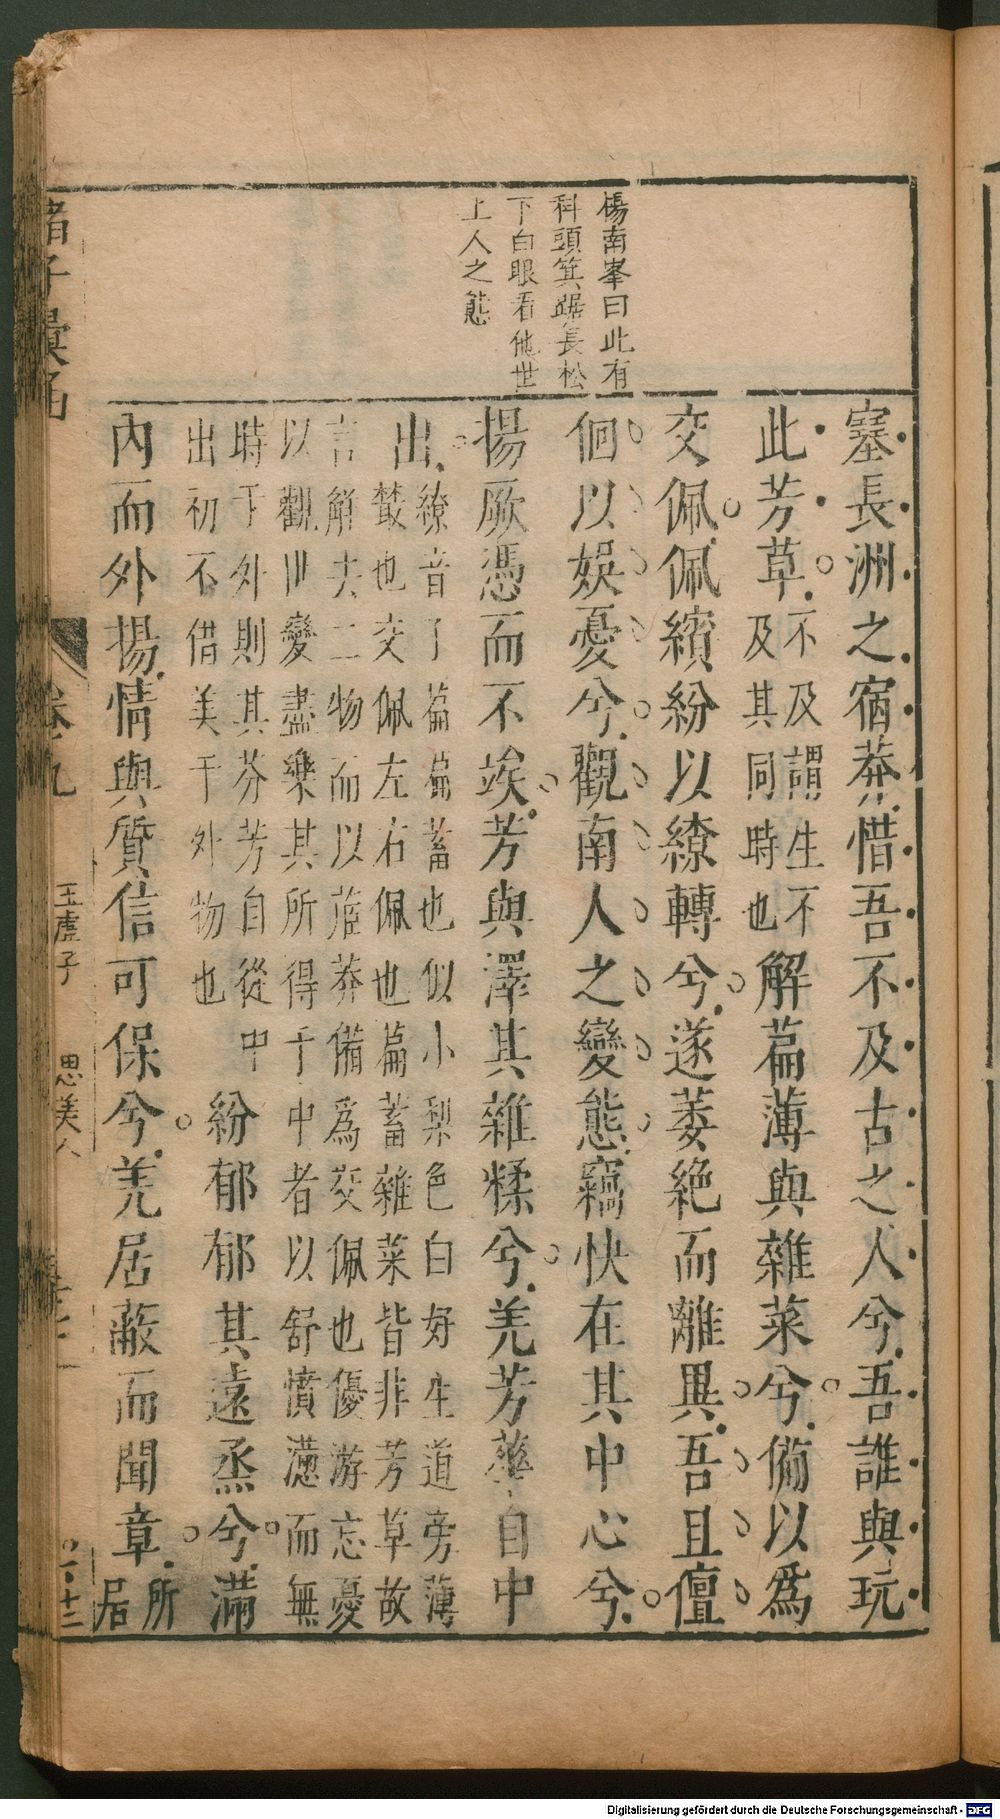 楊南峯曰此有
科頭箕踞長松
下白眼看他世
上人之態
搴長洲之宿莽惜吾不及古之人兮吾誰與玩
此芳草
不及謂生不
及其同時也
解萹薄與雜菜兮備以爲
交佩佩繽紛以繚轉兮遂萎絕而離異吾且儃
佪以娛憂兮觀南人之變態竊快在其中心兮
揚厥憑而不竢芳與澤其雜糅兮羌芳華自中
出
繚音了萹萹蓄也似小梨色白好生道旁薄
叢也交佩左右佩也萹蓄雜菜皆非芳草故
言解去二物而以薠莽備爲交佩也優游忘憂
以觀世變盡樂其所得于中者以舒憤懣而無
時于外則其芬芳自從中
出初不借美于外物也
紛郁郁其遠烝兮滿
內而外揚情與質信可保兮羌居蔽而聞章
所
居
諸子彙函
卷九
玉虛子
思美人
六十二
Digitalisierung gefördert durch die Deutsche Forschungsgemeinschaft - DFG